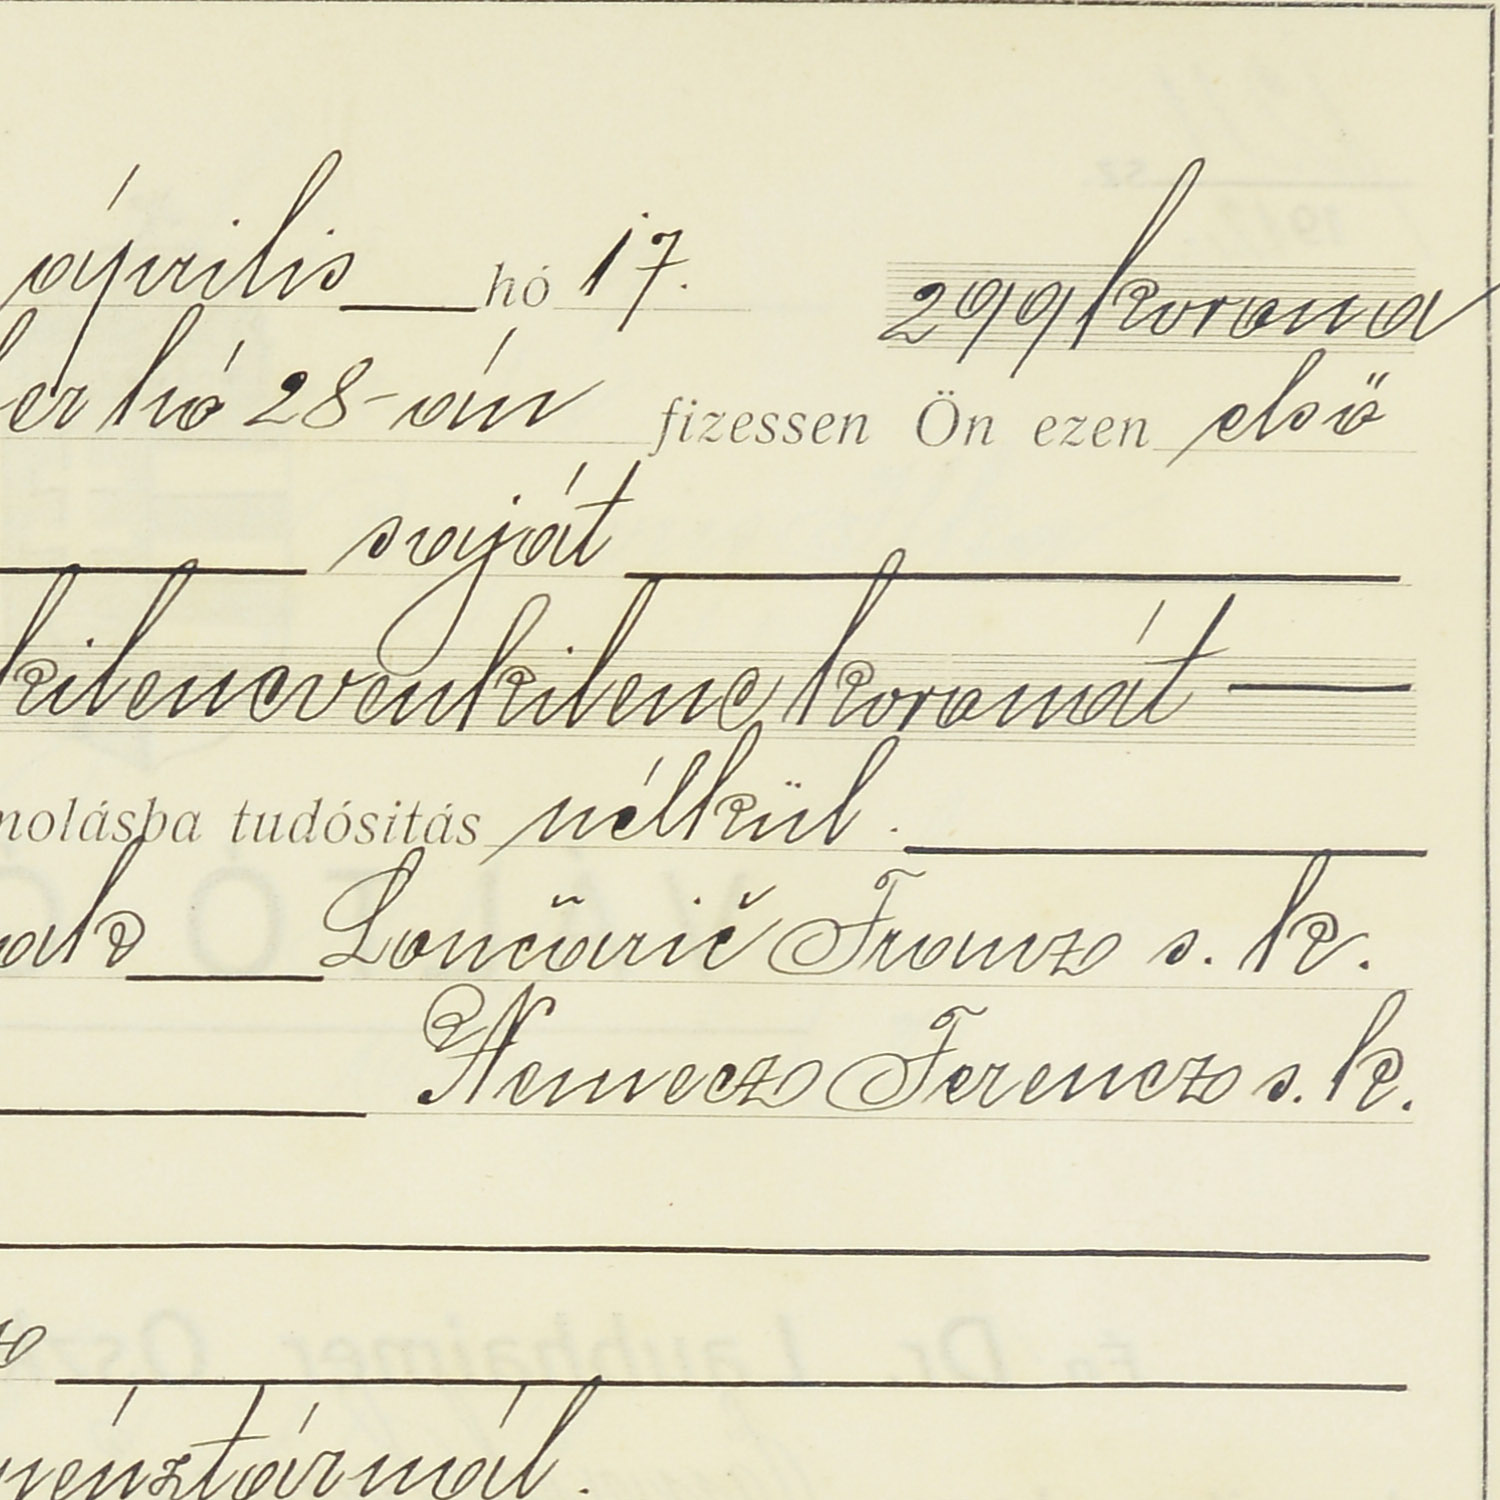 április hó 17. 299 korona
ber hó 28-án fizessen Ön ezen első
saját
kilencvenkilenc koronát
molásba tudósitás nélkül.
nak Lončarič Franz s. k.
Nemecz Ferencz s. k.
pénztárnál.